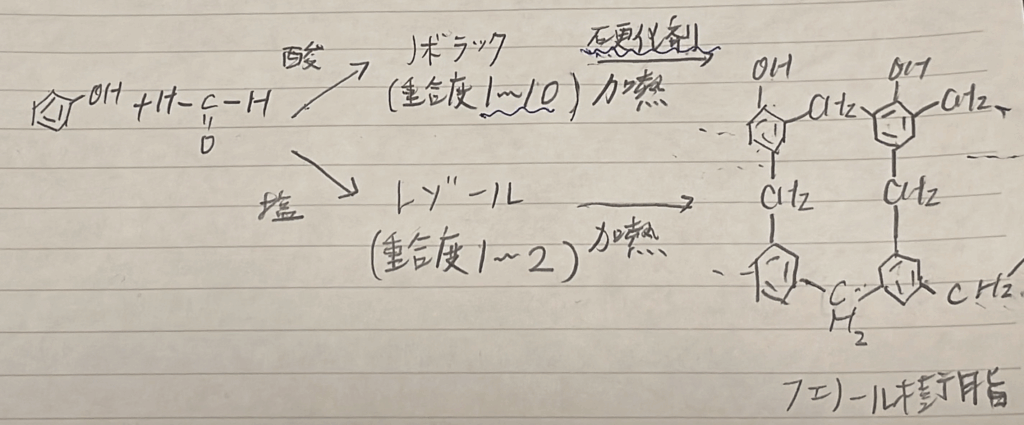 酸 ノボラック 硬化剤
OH + H-C-H (重合度1~10) 加熱
O
塩 レゾール
(重合度1~2) 加熱
OH OH
CH2 CH2
CH2 CH2
C CH2
H2
フェノール樹脂